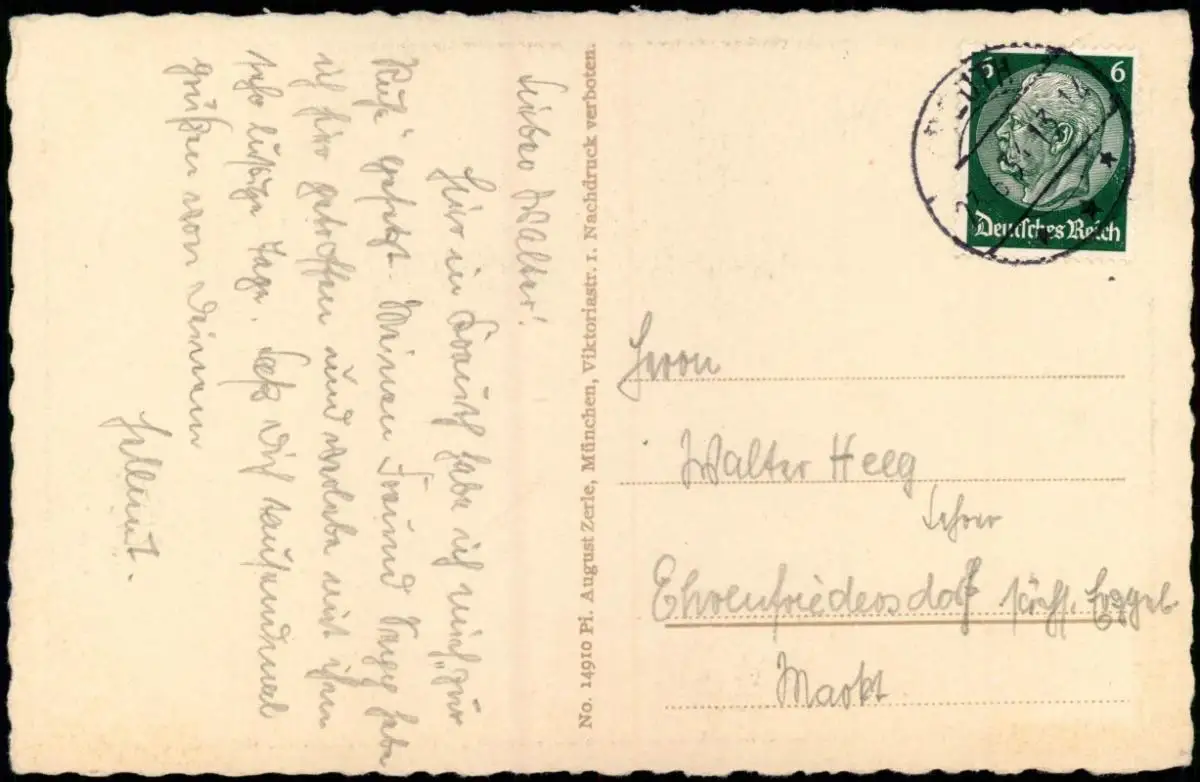 Lieber Walter!
Hier in Prauth habe ich mich „zur
Ruh" gesetzt. Meinen Freund habe
ich hier getroffen und verlebe mit ihm
sehr lustige Tage. Laß Dich tausendmal
grüßen von Deinem
Hellmut.
No. 14910 Pi. August Zerle, München, Viktoriastr. 1. Nachdruck verboten.
6 6
Deutsches Reich
Herrn
Walter Heeg
Lehrer
Ehrenfriedersdorf sächs. Erzgeb.
Markt